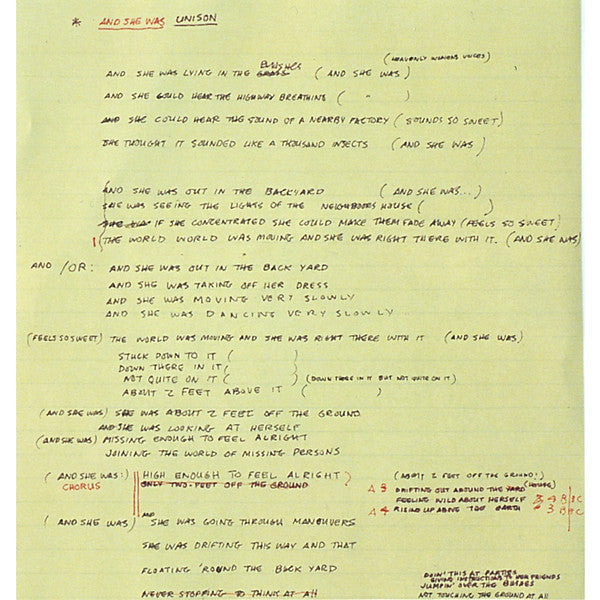 * AND SHE WAS UNISON
(HEAVENLY WOMENS VOICES)
AND SHE WAS LYING IN THE GRASS BUSHES (AND SHE WAS)
AND SHE COULD HEAR THE HIGHWAY BREATHING ( " )
AND SHE COULD HEAR THE SOUND OF A NEARBY FACTORY (SOUNDS SO SWEET)
SHE THOUGHT IT SOUNDED LIKE A THOUSAND INSECTS (AND SHE WAS)
AND SHE WAS OUT IN THE BACKYARD (AND SHE WAS...)
SHE WAS SEEING THE LIGHTS OF THE NEIGHBORS HOUSE ( )
IF SHE CONCENTRATED SHE COULD MAKE THEM FADE AWAY (FEELS SO SWEET)
THE WORLD WORLD WAS MOVING AND SHE WAS RIGHT THERE WITH IT. (AND SHE WAS)
AND/OR: AND SHE WAS OUT IN THE BACK YARD
AND SHE WAS TAKING OFF HER DRESS
AND SHE WAS MOVING VERY SLOWLY
AND SHE WAS DANCING VERY SLOWLY
(FEELS SO SWEET) THE WORLD WAS MOVING AND SHE WAS RIGHT THERE WITH IT (AND SHE WAS)
STUCK DOWN TO IT ( )
DOWN THERE IN IT ( )
NOT QUITE ON IT ( ) (DOWN THERE IN IT BUT NOT QUITE ON IT)
ABOUT 2 FEET ABOVE IT ( )
(AND SHE WAS) SHE WAS ABOUT 2 FEET OFF THE GROUND
AND SHE WAS LOOKING AT HERSELF
(AND SHE WAS) MISSING ENOUGH TO FEEL ALRIGHT
JOINING THE WORLD OF MISSING PERSONS
(AND SHE WAS:) HIGH ENOUGH TO FEEL ALRIGHT) (ABOUT 2 FEET OFF THE GROUND!)
CHORUS ONLY TWO FEET OFF THE GROUND
A 3 DRIFTING OUT AROUND THE YARD (HOUSE)
FEELING WILD ABOUT HERSELF
A 4 RISING UP ABOVE THE EARTH
(AND SHE WAS) AND SHE WAS GOING THROUGH MANEUVERS
SHE WAS DRIFTING THIS WAY AND THAT
FLOATING 'ROUND THE BACK YARD
NEVER STOPPING TO THINK AT ALL
DOIN' THIS AT PARTIES
GIVING INSTRUCTIONS TO HER FRIENDS
JUMPIN' OVER THE BUSHES
NOT TOUCHING THE GROUND AT ALL